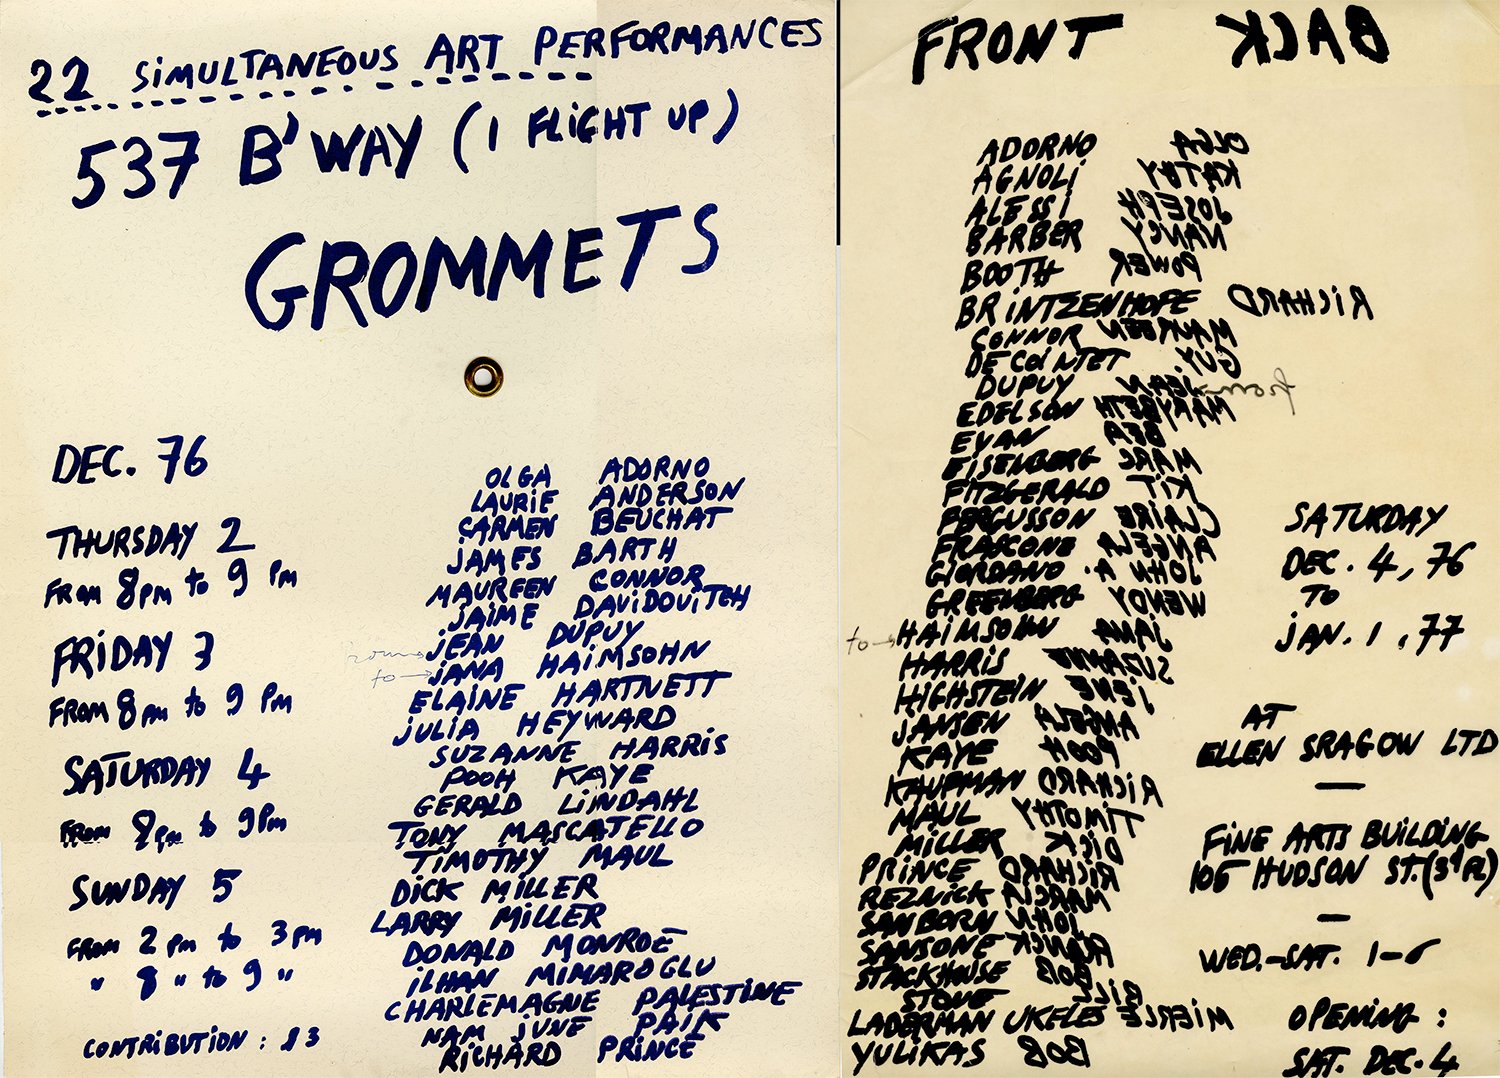 22 SIMULTANEOUS ART PERFORMANCES
537 B'WAY (1 FLIGHT UP)
GROMMETS
DEC. 76
THURSDAY 2
FROM 8PM to 9 PM
FRIDAY 3
FROM 8PM to 9 PM
SATURDAY 4
FROM 8PM to 9PM
SUNDAY 5
FROM 2 PM to 3 PM
" 8 " to 9 "
CONTRIBUTION : $3
OLGA ADORNO
LAURIE ANDERSON
CARMEN BEUCHAT
JAMES BARTH
MAUREEN CONNOR
JAIME DAVIDOVITCH
from → JEAN DUPUY
to → JANA HAIMSOHN
ELAINE HARTNETT
JULIA HEYWARD
SUZANNE HARRIS
POOH KAYE
GERALD LINDAHL
TONY MASCATELLO
TIMOTHY MAUL
DICK MILLER
LARRY MILLER
DONALD MONROE
ILHAN MIMAROGLU
CHARLEMAGNE PALESTINE
NAM JUNE PAIK
RICHARD PRINCE
FRONT BACK
ADORNO OLGA
AGNOLI KATHY
ALESSI JOSEPH
BARBER NANCY
BOOTH POWER
BRINTZENHOFE RICHARD
CONNOR MAUREEN
DE COINTET GUY.
DUPUY JEAN from
EDELSON MARYBETH
EVAN BEA
EISENBERG MARC
FITZGERALD KIT
FERGUSSON CLAIRE
FRASCONE ANGELA
GIORDANO JOHN A.
GREENBERG WENDY
to → HAIMSOHN JANA
HARRIS SUZANNE
HIGHSTEIN JENE
JANSEN ANGELA
KAYE POOH
KAUFMAN RICHARD
MAUL TIMOTHY
MILLER DICK
PRINCE RICHARD
REZNICK MARCIA
SANBORN JOHN
SANSONE
STACKHOUSE BOB
STONE BILL
LADERMAN UKELES MIERLE
YULIKAS BOB
SATURDAY
DEC. 4, 76
TO
JAN. 1, 77
AT
ELLEN SRAGOW LTD
—
FINE ARTS BUILDING
105 HUDSON ST. (3d FL)
—
WED.-SAT. 1-6
OPENING :
SAT. DEC. 4